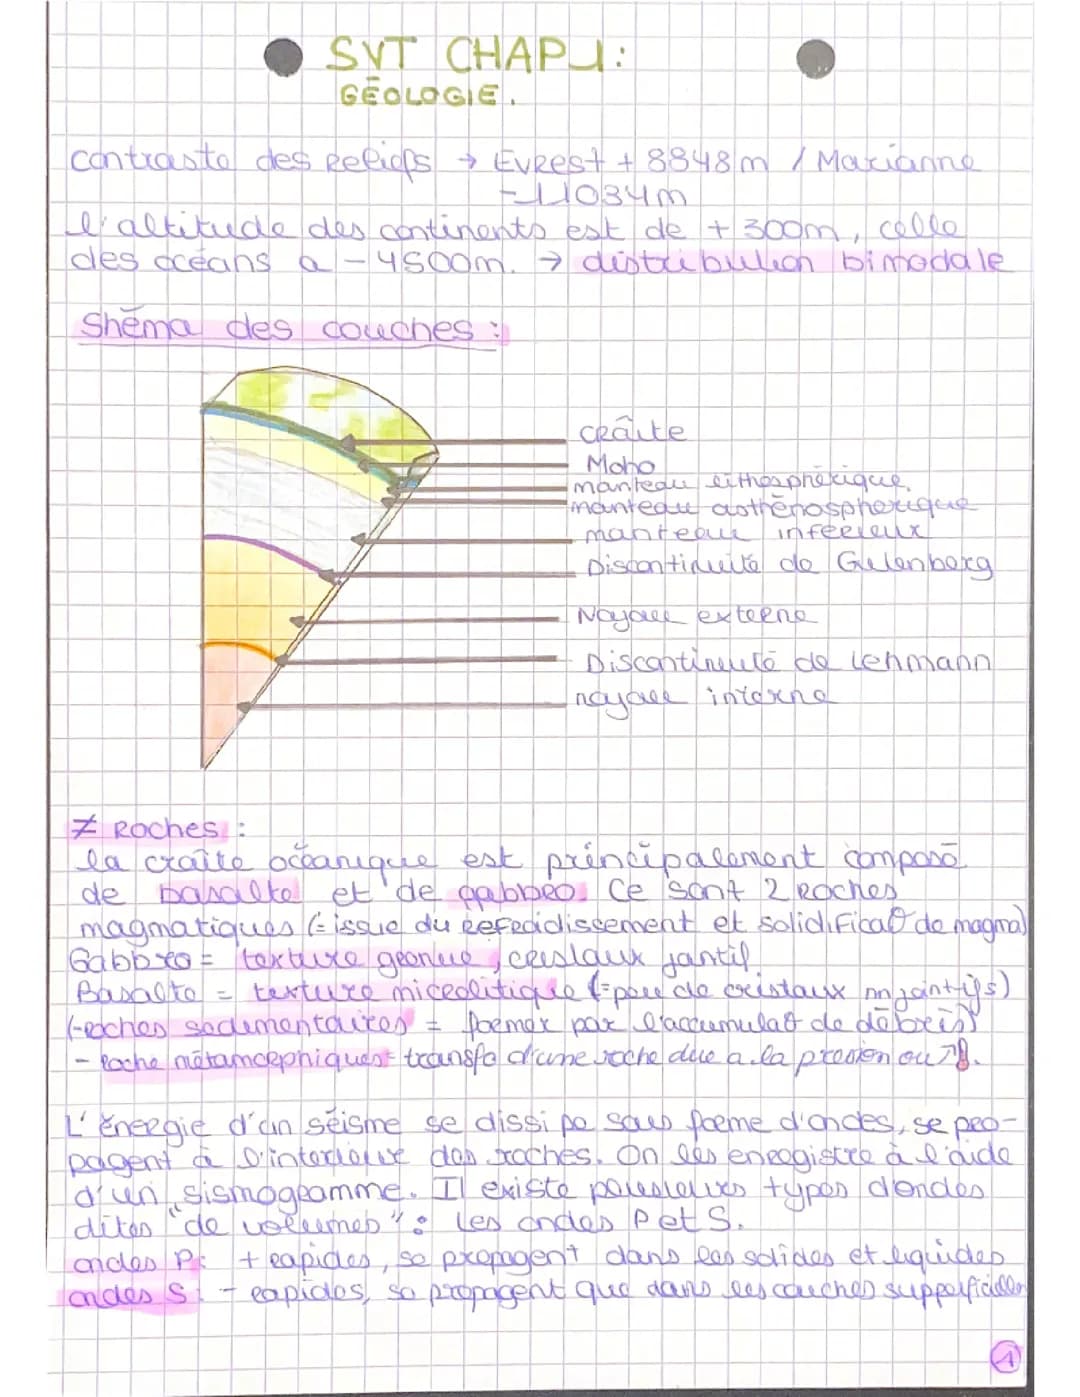 SVT CHAP 1:
GÉOLOGIE.
contraste des Reliefs → Evrest + 8848m / Marianne
-11034m
l'altitude des continents est de + 300m, celle
des océans a -4500m. → distribution bimodale
Shéma des couches :
croûte
Moho
manteau lithosphérique.
manteau asthénospherique
manteau inférieur
Discontinuité de Gutenberg
Noyau externe
Discontinuité de Lehmann
noyau interne
≠ Roches :
la croûte océanique est principalement composé
de basalte et de gabbro. Ce sont 2 Roches
magmatiques (= issue du refroidissement et solidificat° de magma)
Gabbro = texture grenue, cristaux jantif
Basalte = texture microlitique (=peu de cristaux nn jointifs)
(-roches sédimentaires = former par l'accumulat° de débris)
- Roche métamorphiques = transfo d'une roche due a la presion ou ↗
L'énergie d'un séisme se dissipe sous forme d'ondes, se pro-
pagent à l'interieur des roches. On les enregistre à l'aide
d'un sismogramme. Il existe plusieurs types d'ondes
dites "de volumes" : les ondes P et S.
ondes P: + rapides, se propagent dans les solides et liquides
ondes S: - rapides, se propagent que dans les couches supperficielles
1